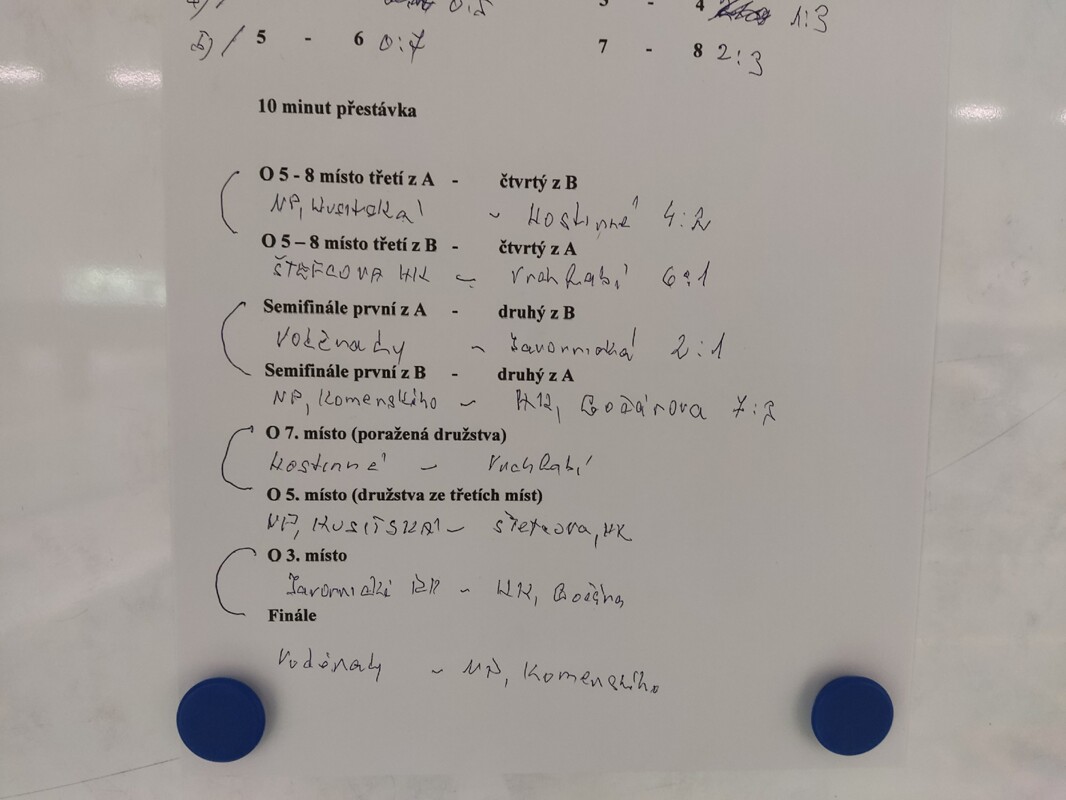 0:5 3 - 4 1:3
5 - 6 0:7 7 - 8 2:3
10 minut přestávka
O 5 - 8 místo třetí z A - čtvrtý z B
NP, Husitská - Hostinné 4:2
O 5 – 8 místo třetí z B - čtvrtý z A
ŠTEFCOVA HK - Vrchlabí 6:1
Semifinále první z A - druhý z B
Voděrady - Javornická 2:1
Semifinále první z B - druhý z A
NP, Komenského - HK, Gočárova 7:3
O 7. místo (poražená družstva)
Hostinné - Vrchlabí
O 5. místo (družstva ze třetích míst)
NP, HUSITSKÁ - Štefcova, HK
O 3. místo
Javornická RK - HK, Gočár.
Finále
Voděrady - NP, Komenského